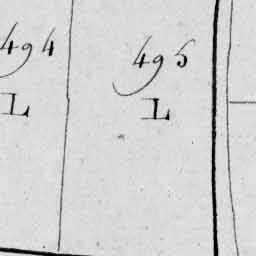 494
L
495
L